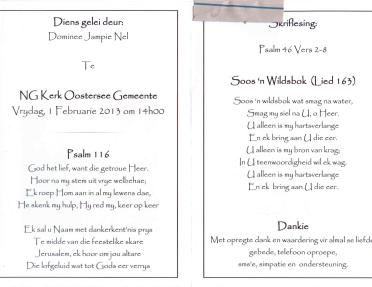 Diens gelei deur:
Dominee Jampie Nel
Te
NG Kerk Oostersee Gemeente
Vrydag, 1 Februarie 2013 om 14h00
Psalm 116
God het lief, want die getroue Heer.
Hoor na my stem uit vrye welbehae;
Ek roep Hom aan in al my lewens dae,
He skenk my hulp, Hy red my, keer op keer
Ek sal u Naam met dankerkent'nis prys
Te midde van die feestelike skare
Jerusalem, ek hoor om jou altare
Die lofgeluid wat tot Gods eer verrys
Skriflesing:
Psalm 46 Vers 2-8
Soos 'n Wildsbok (Lied 163)
Soos 'n wildsbok wat smag na water,
Smag my siel na U, o Heer.
U alleen is my hartsverlange
En ek bring aan U die eer.
U alleen is my bron van krag;
In U teenwoordigheid wil ek wag.
U alleen is my hartsverlange
En ek bring aan U die eer.
Dankie
Met opregte dank en waardering vir almal se liefde,
gebede, telefoon oproepe,
sms'e, simpatie en ondersteuning.